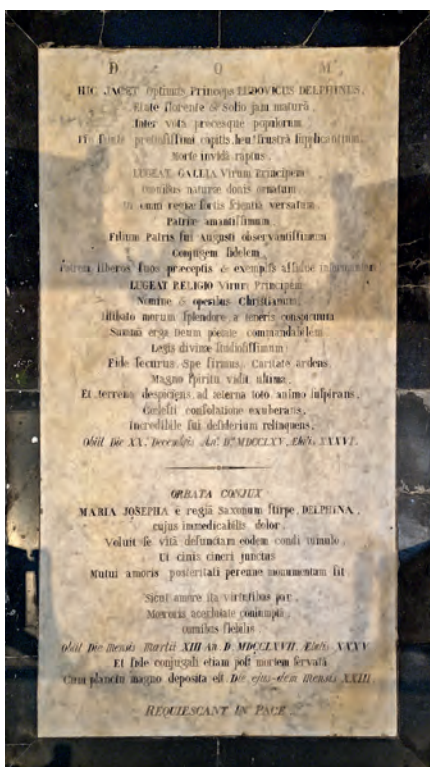 D O M
HIC JACET Optimus Princeps LUDOVICUS DELPHINUS,
Ætate florente & Solio jam maturâ,
Inter vota precesque populorum
Pro salute pretiosissimi capitis, heu! frustrà supplicantium,
Morte invidâ raptus.
LUGEAT GALLIA Virum Principem
Omnibus naturæ donis ornatum
In omni regiæ sortis scientiâ versatum
Patriæ amantissimum
Filium Patris sui Augusti observantissimum
Conjugem fidelem
Patrem liberos suos præceptis & exemplis assidue informantem
LUGEAT RELIGIO Virum Principem
Nomine & operibus Christianum,
Illibato morum splendore a teneris conspicuum
Summâ erga Deum pietate commendabilem
Legis divinæ studiosissimum
Fide securus, Spe firmus, Caritate ardens,
Magno spiritu vidit ultima,
Et terrena despiciens, ad æterna toto animo suspirans,
Coelesti consolatione exuberans,
Incredibile sui desiderium relinquens,
Obiit Die XX.ª Decembris An.º D.ni MDCCLXV, Ætatis XXXVI.
ORBATA CONJUX
MARIA JOSEPHA e regiâ Saxonum stirpe, DELPHINA,
cujus immedicabilis dolor,
Voluit se vitâ defunctam eodem condi tumulo,
Ut cinis cineri junctus
Mutui amoris posteritati perenne monumentum sit
Sicut amore ita virtutibus par,
Moeroris acerbitate consumpta,
omnibus flebilis
Obiit Die Mensis Martii XIII An. D. MDCCLXVII, Ætatis XXXV
Et fide conjugali etiam post mortem servatâ
Cum planctu magno deposita est Die ejus-dem Mensis XXIII
REQUIESCANT IN PACE